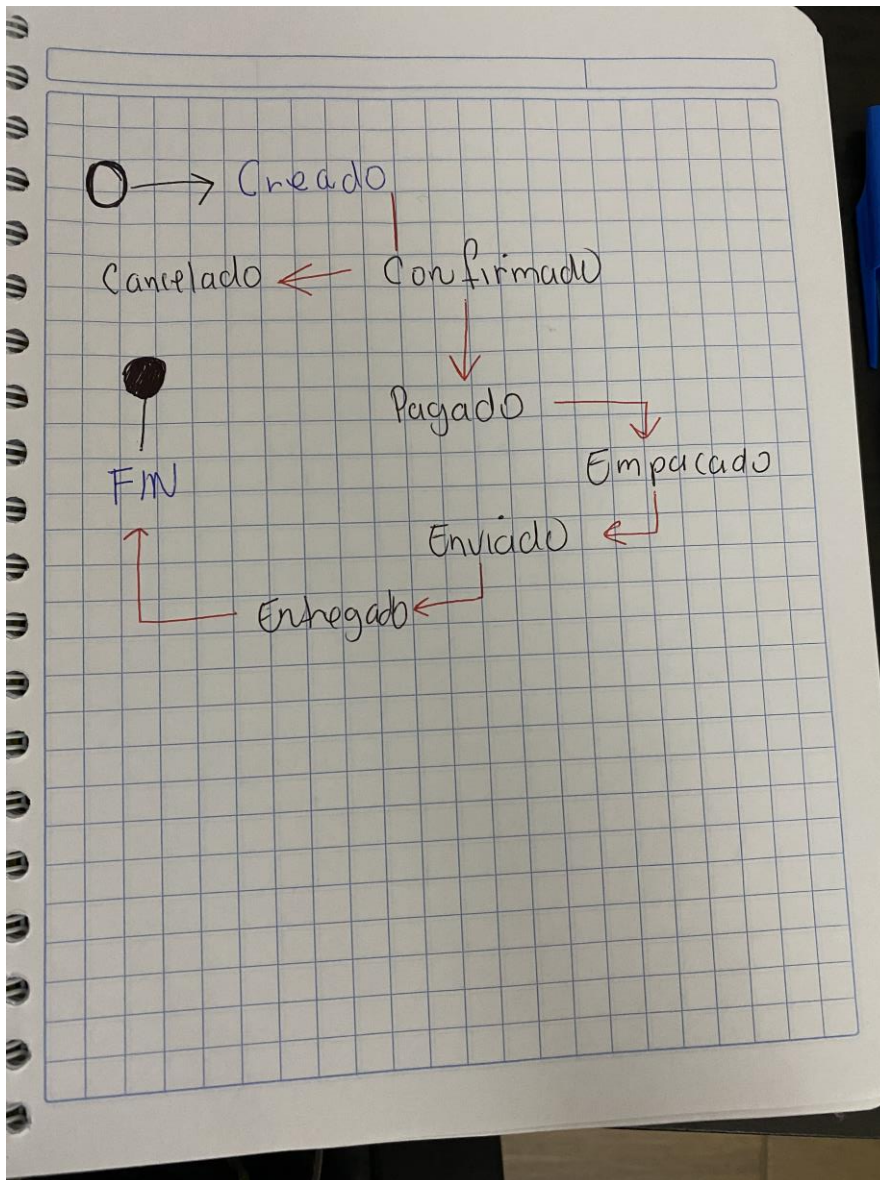 Creado
Cancelado Confirmado
Pagado
Empacado
FIN
Enviado
Entregado